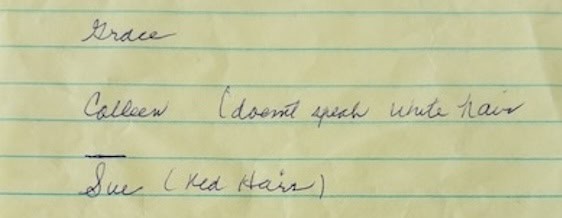 Grace
Colleen (doesnt speak white hair
Sue (Red Hair)